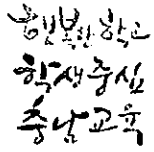 행복한 학교
학생중심
충남교육